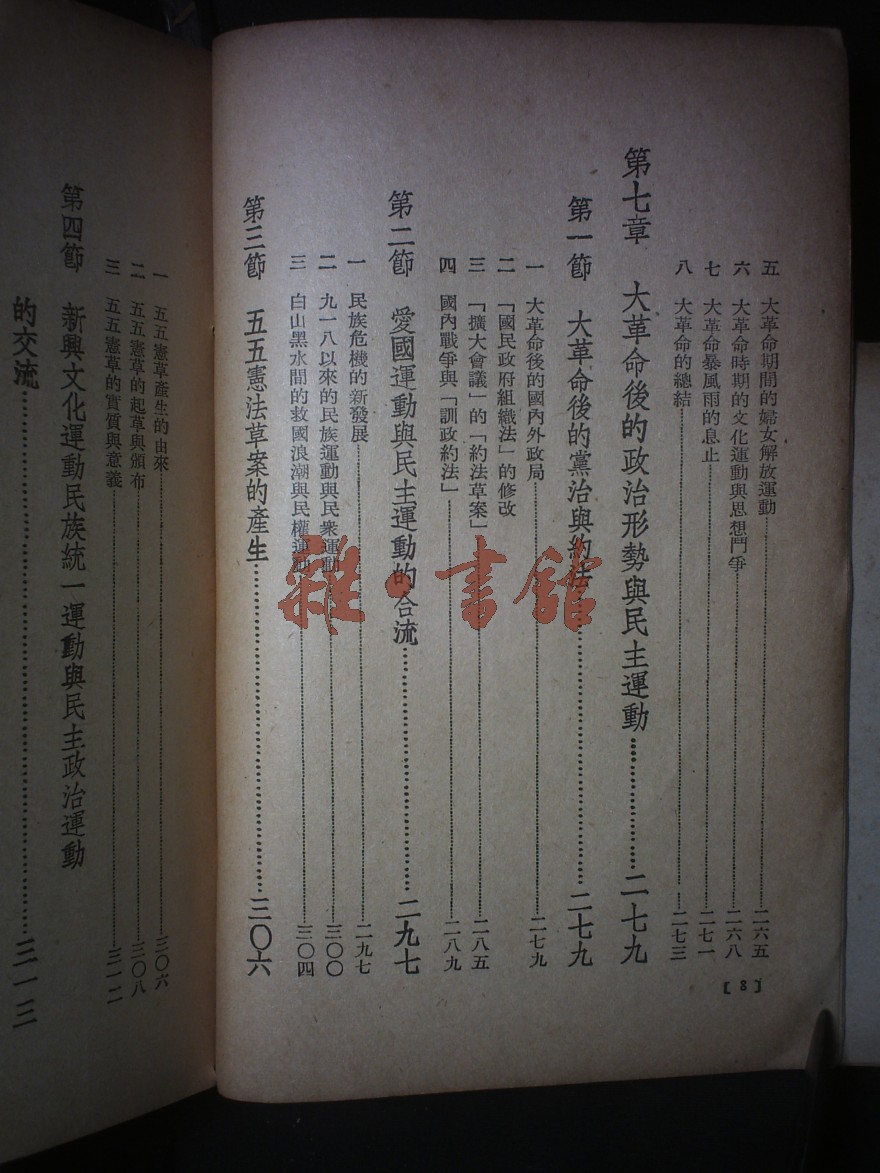 五　大革命期間的婦女解放運動……二六五
六　大革命時期的文化運動與思想鬥爭……二六八
七　大革命暴風雨的息止……二七一
八　大革命的總結……二七三
第七章　大革命後的政治形勢與民主運動……二七九
第一節　大革命後的黨治與約法……二七九
一　大革命後的國內外政局……二七九
二　「國民政府組織法」的修改
三　「擴大會議」的「約法草案」……二八五
四　國內戰爭與「訓政約法」……二八九
第二節　愛國運動與民主運動的合流……二九七
一　民族危機的新發展……二九七
二　九一八以來的民族運動與民衆運動……三〇〇
三　白山黑水間的救國浪潮與民權運動……三〇四
第三節　五五憲法草案的產生……三〇六
[8]
一　五五憲草產生的由來……三〇六
二　五五憲草的起草與頒布……三〇八
三　五五憲草的實質與意義……三一二
第四節　新興文化運動民族統一運動與民主政治運動
的交流……三一三
雜·書館